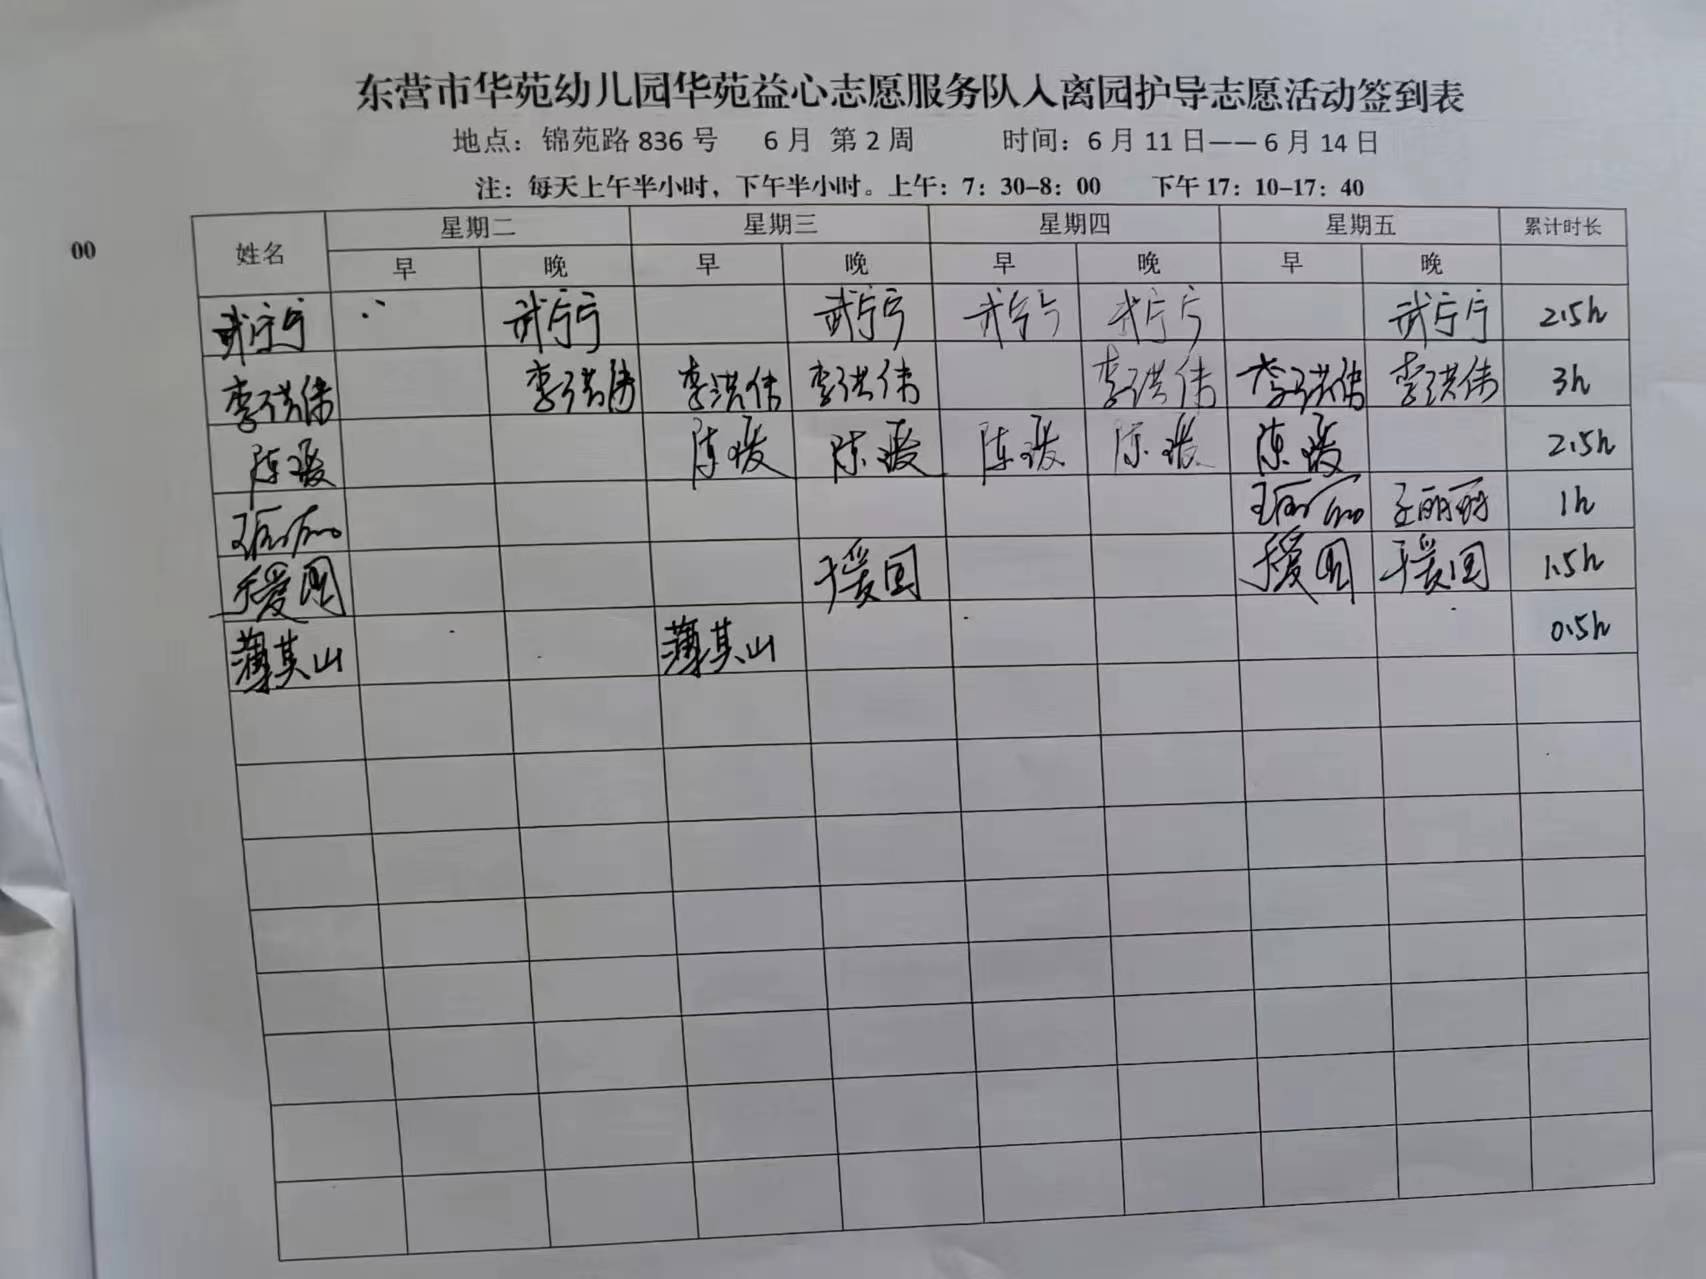 东营市华苑幼儿园华苑益心志愿服务队入离园护导志愿活动签到表
地点：锦苑路 836 号 6 月 第 2 周 时间：6 月 11 日—— 6 月 14 日
注：每天上午半小时，下午半小时。上午：7：30-8：00 下午 17：10-17：40
00
姓名 星期二 星期三 星期四 星期五 累计时长
早 晚 早 晚 早 晚 早 晚
武宁宁 武宁宁 武宁宁 武宁宁 武宁宁 武宁宁 2.5h
李洪伟 李洪伟 李洪伟 李洪伟 李洪伟 李洪伟 李洪伟 3h
陈瑗 陈瑗 陈瑗 陈瑗 陈瑗 陈瑗 2.5h
王丽丽 王丽丽 王丽丽 1h
于爱国 于爱国 于爱国 于爱国 1.5h
薄其山 薄其山 0.5h